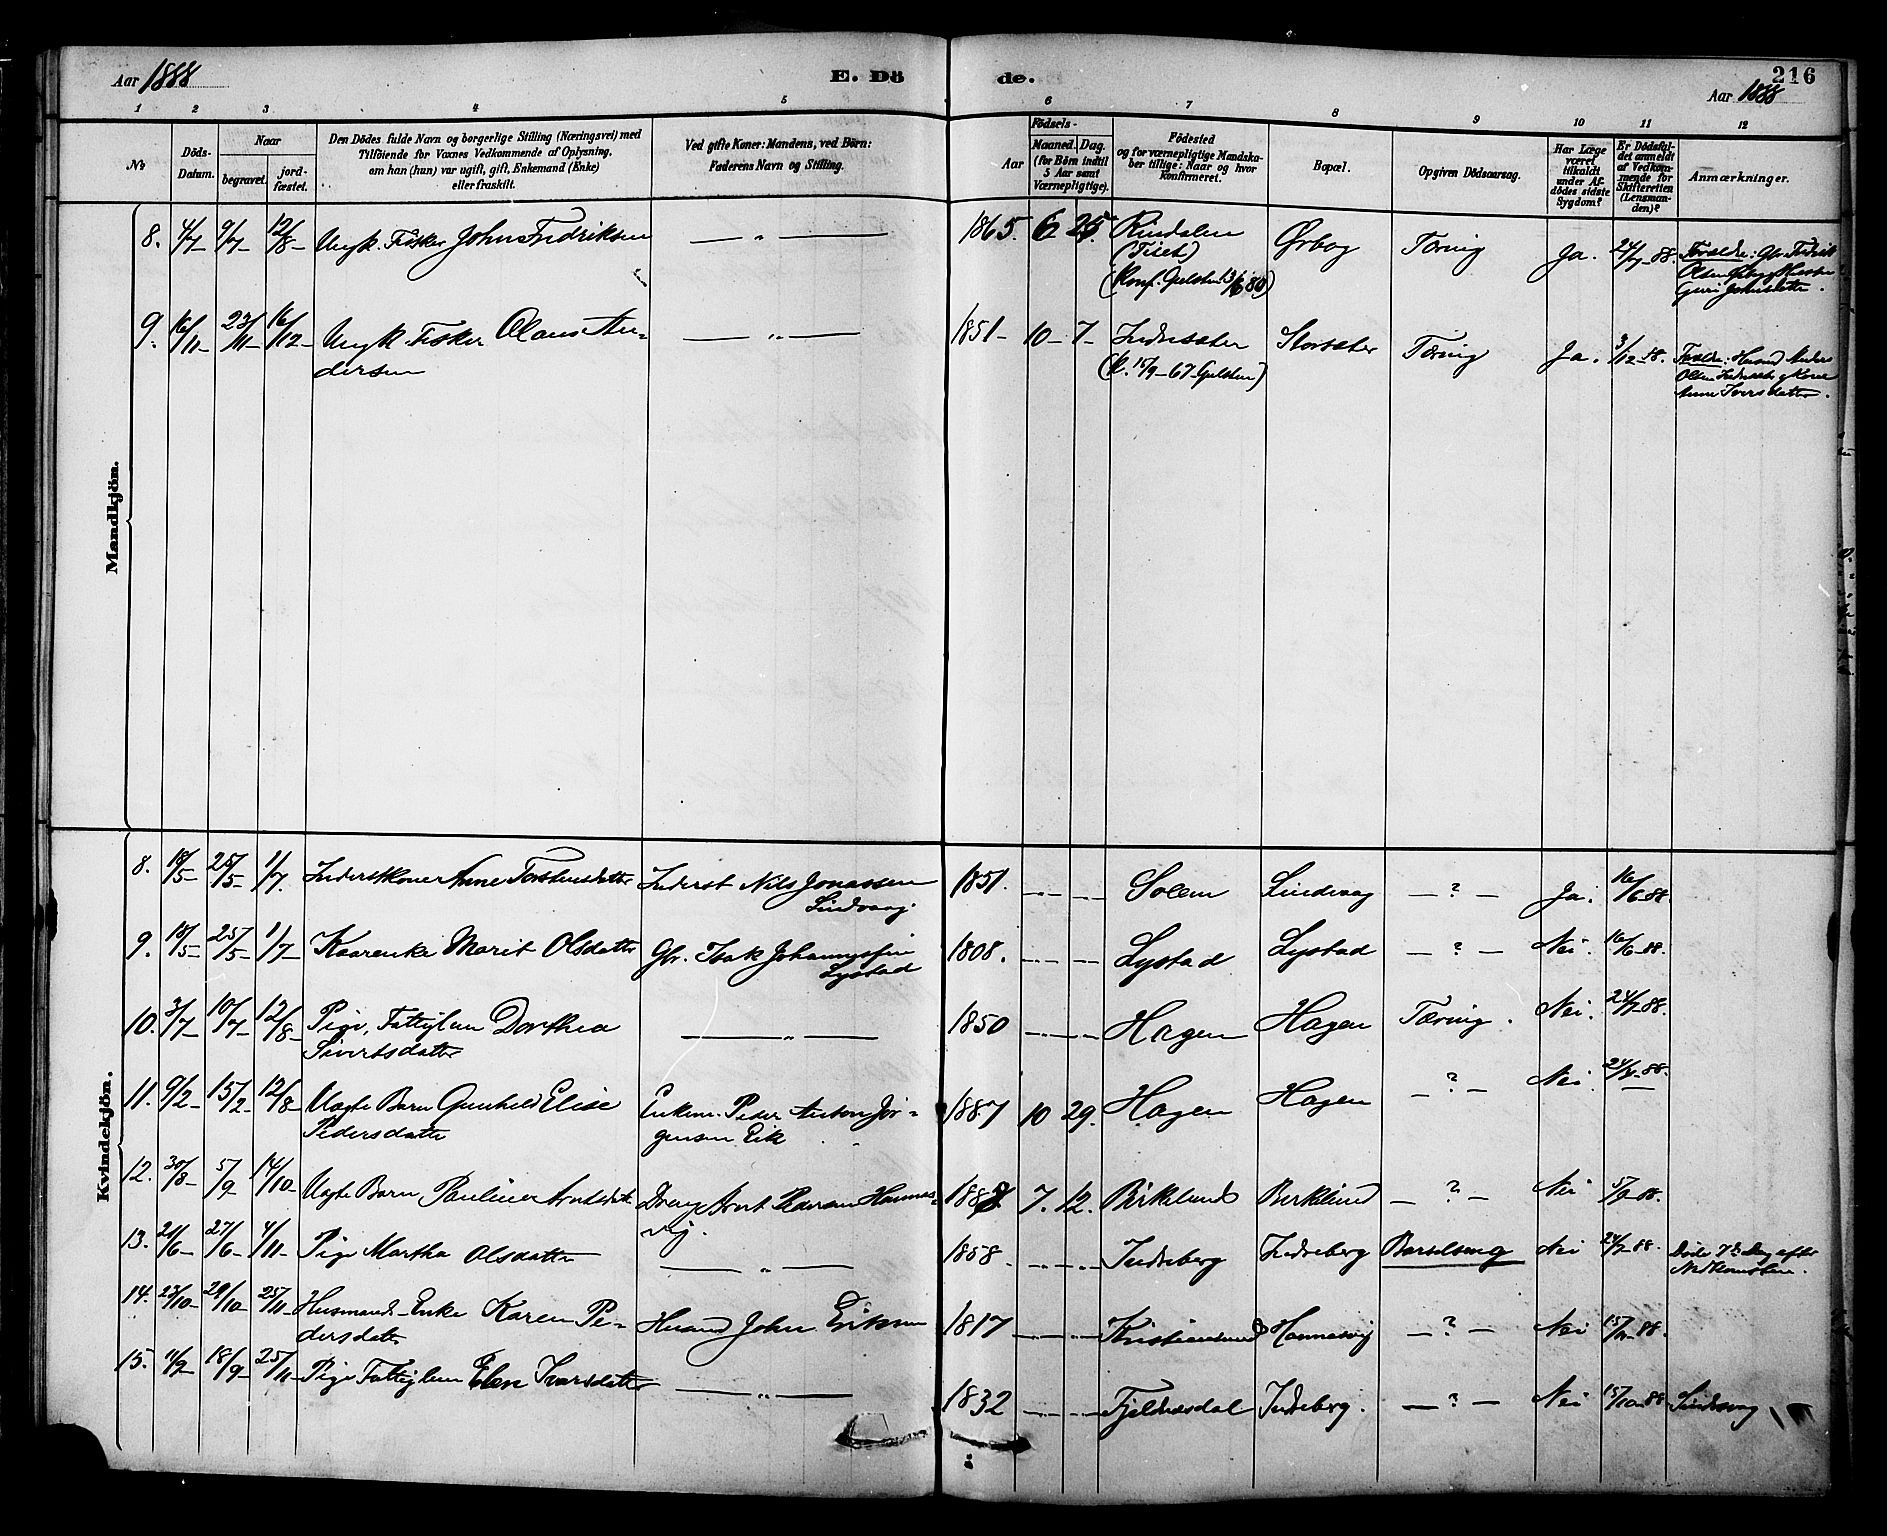 Aar 1888
E. Dö
de.
216
Aar 1888
1 2 3 4 5 6 7 8 9 10 11 12
No
Döds-
Datum.
Naar
begravet.
jord-
fæstet.
Den Dödes fulde Navn og borgerlige Stilling (Næringsvei) med
Tilföiende for Voxnes Vedkommende af Oplysning,
om han (hun) var ugift, gift, Enkemand (Enke)
eller fraskilt.
Ved gifte Koner: Mandens, ved Börn:
Faderens Navn og Stilling.
Födsels-
Aar
Maaned. Dag.
(for Börn indtil
5 Aar samt
Værnepligtige).
Födested
og for værnepligtige Mandska-
ber tillige: Naar og hvor
konfirmeret.
Bopæl.
Opgiven Dödsaarsag.
Har Læge
været
tilkaldt
under Af-
dödes sidste
Sygdom?
Er Dödsfal-
det anmeldt
af Vedkom-
mende for
Skifteretten
(Lensman-
den)?
Anmærkninger.
Mandkjön.
8. 4/7 9/7 12/8 Ungk. Fisker John Fredriksen — „ — 1865. 6 25. Rindalen Ørbog Tæring Ja. 24/7-88. Forældre: Gbr. Fredrik
(Tiset)
(Konf. 13/6 80)
Guri Johnsdatter.
9. 16/11 23/11 16/12 Ungk. Fisker Olaus An-
dersen — „ — 1851 10 7 Indresæter Storsæter Tæring Ja. 3/12-88. Forældre: Husmd Anders
(k. 15/9-67
Olsen Indresæter og Kone
Anne Iversdatter.
Kvindekjön.
8. 18/5 25/5 1/7. Inderstkone Anne Torstensdatter Inderst Nils Jonassen
Lindvaag. 1851. Solem Lindvaag — ? — Ja. 16/6-88.
9. 18/5 25/5 1/7 Kaarenke Marit Olsdatter Gbr. Isak Johannessen
Lystad 1808. Lystad Lystad — ? — Nei. 16/6-88.
10. 3/7 10/7 12/8 Pige, Fattiglem Dorthea
Sivertsdatter — „ — 1850 Hagen Hagen Tæring. Nei. 24/7-88.
11. 9/2 15/2 12/8 Uægte Barn Gunhild Elise
Pedersdatter Enkem. Peder Anton Jör-
gensen Eik 1887 10 29. Hagen Hagen — ? — Nei.
12. 30/8 5/9 14/10 Uægte Barn Pauline Arntsdatter Dreng Arnt Hannes-
vig. 1888. 7. 12. Birkelund Birkelund — ? — Nei 5/9-88.
13. 21/6 27/6 4/11 Pige Martha Olsdatter — „ — 1858. Indreberg Indreberg Barselseng Nei 24/7-88. Döde 7de Dag efter
Nedkomsten.
14. 23/10 29/10 25/11 Husmands-Enke Karen Pe-
dersdatter Husmd John Eriksen 1817 Kristiansund Hannesvig — ? — Nei
15. 11/9 18/9 25/11 Pige Fattiglem Elen Ivarsdatter — „ — 1832 Fjeldnesdal Indreberg. — ? — Nei 15/10-88 Lindvaag